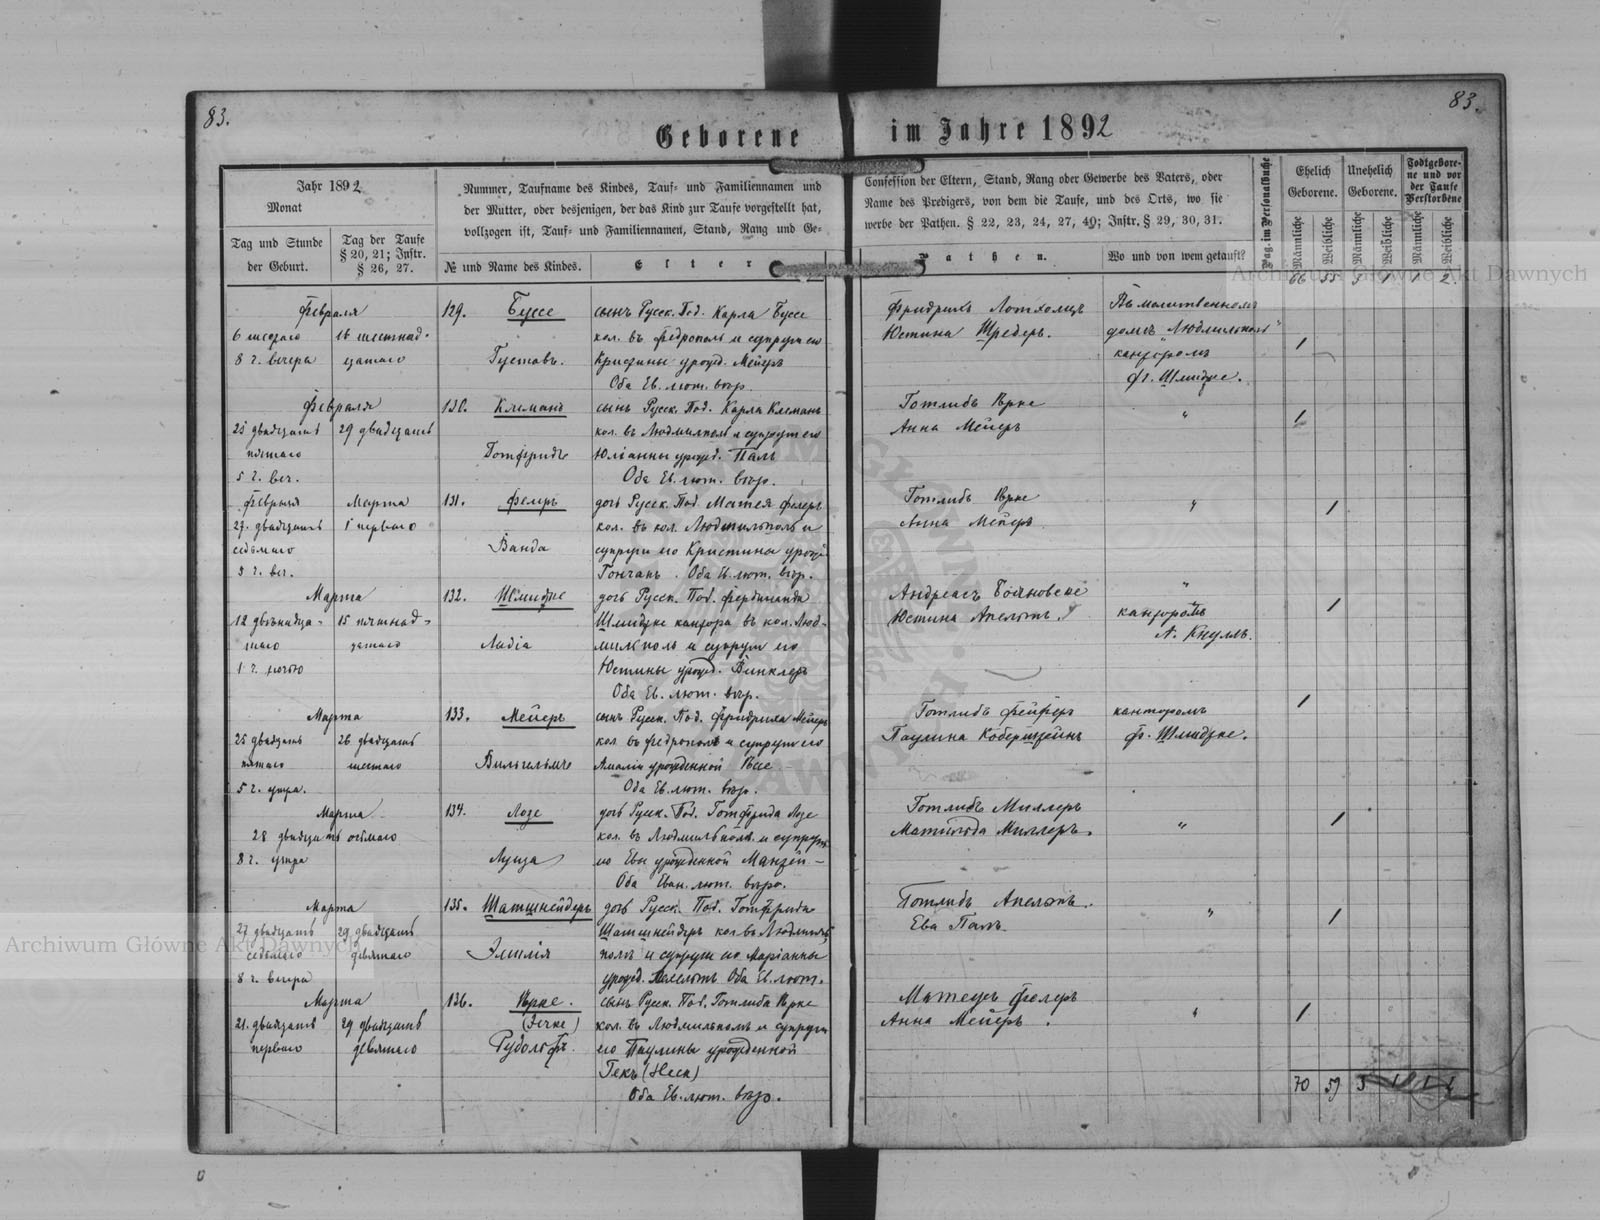 83.
83.
Geborene im Jahre 1892
Jahr 1892
Monat
Tag und Stunde
der Geburt.
Tag der Taufe
§ 20, 21; Instr.
§ 26, 27.
Nummer, Taufname des Kindes, Tauf- und Familiennamen und
der Mutter, oder desjenigen, der das Kind zur Taufe vorgestellt hat,
vollzogen ist, Tauf- und Familiennamen, Stand, Rang und Ge-
№ und Name des Kindes.
Elter
Confession der Eltern, Stand, Rang oder Gewerbe des Vaters, oder
Name des Predigers, von dem die Taufe, und des Orts, wo sie
werbe der Pathen. § 22, 23, 24, 27, 40; Instr. § 29, 30, 31.
Pathen.
Wo und von wem getauft?
Pag. im Personalbuche
Ehelich
Geborene.
Unehelich
Geborene.
Todtgebore-
ne und vor
der Taufe
Verstorbene
Männliche
Weibliche
Männliche
Weibliche
Männliche
Weibliche
66 55 5 1 1 2
Февраля
6 шестаго
8 ч. вечера
16 шестнад-
цатаго
129. Буссе
Густавъ.
сынъ Русск. Под. Карла Буссе
кол. въ Федрополь и супруги его
Кристины урожд. Мейеръ
Оба Ев. лют. вѣр.
Фридрихъ Лотхольцъ
Юстина Шредеръ.
Въ молитвенномъ
домѣ Людмильполь
канторомъ
Ф. Шмидтке.
1
Февраля
25 двадцать
пятаго
5 ч. веч.
29 двадцать
130. Клеманъ
Готфридъ
сынъ Русск. Под. Карла Клеманъ
кол. въ Людмилполь и супруги его
Юліанны урожд. Паль
Оба Ев. лют. вѣр.
Готлибъ Ярке
Анна Мейеръ
"
1
Февраля
27. двадцать
седьмаго
ч. веч.
Марта
1 перваго
131. Фелеръ
Ванда
дочь Русск. Под. Матея Фелеръ
кол. въ кол. Людмильполь и
супруги его Кристины урожд.
Гончакъ. Оба Ев. лют. вѣр.
Готлибъ Ярке
Анна Мейеръ
"
1
Марта
12 двѣнадца-
таго
1 ч. ночью
15 пятнад-
цатаго
132. Шмидтке
Лидія
дочь Русск. Под. Фердинанда
Шмидтке кантора въ кол. Люд-
мильполь и супруги его
Юстины урожд. Винклеръ
Оба Ев. лют. вѣр.
Андреасъ Бояновскі
Юстина Апельтъ.
"
канторомъ
А. Кнулль.
1
Марта
25 двадцать
пятаго
5 ч. утра.
26 двадцать
шестаго
133. Мейеръ
Вильгельмъ
сынъ Русск. Под. Фридриха Мейеръ
кол. въ Федрополь и супруги его
Амаліи урожденной
Оба Ев. лют. вѣр.
Готлибъ Фейферъ
Паулина Коберштейнъ
канторомъ
Ф. Шмидтке.
1
Марта
28 двадцать осьмаго
8 ч. утра
134. Лозе
Луиза
дочь Русск. Под. Готфрида Лозе
кол. въ Людмильполь и супруги
его Евы урожденной Манзей-
Оба Еван. лют. вѣро.
Готлибъ Миллеръ
Матильда Миллеръ.
"
1
Марта
27 двадцать
седьмаго
8 ч. вечера
29 двадцать
девятаго
135. Шатшнейдеръ
Эмилія
дочь Русск. Под. Готфрида
Шатшнейдеръ кол. въ Людмиль-
полѣ и супруги его Маріанны
урожд. Апельтъ Оба Ев. лют.
Готлибъ Апельтъ.
Ева Паль.
"
1
Марта
21. двадцать
перваго
29 двадцать
девятаго
136. Ярке.
Рудольфъ.
сынъ Русск. Под. Готлиба Ярке
кол. въ Людмильполь и супруги
его Паулины урожденной
Гекъ (Heck)
Оба Ев. лют. вѣр.
Матеусъ Фелеръ
Анна Мейеръ.
"
1
70 59 5 1 1 2
Archiwum Główne Akt Dawnych
Archiwum Główne Akt Dawnych